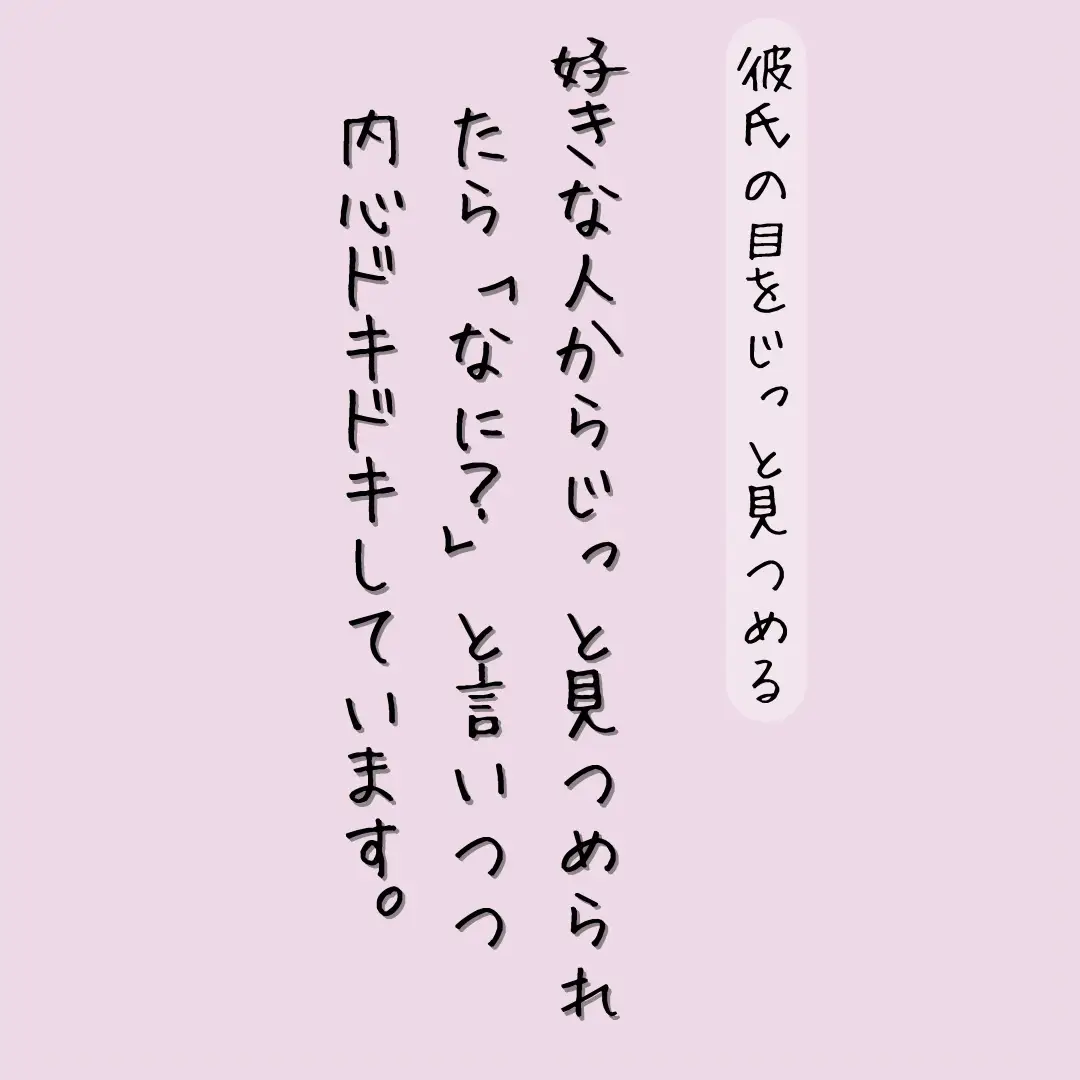 彼氏の目をじっと見つめる
好きな人からじっと見つめられ
たら「なに?」と言いつつ
内心ドキドキしています。